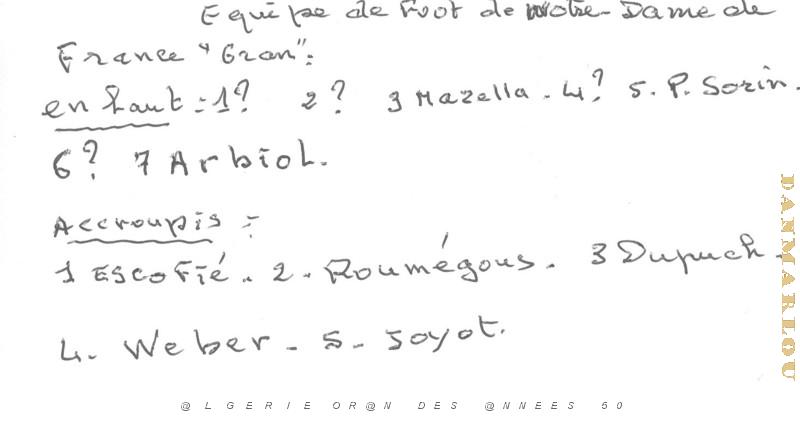 Equipe de Foot de Notre-Dame de
France "Oran":
en haut : 1? 2? 3 Mazella. 4? 5. P. Sorin.
6? 7 Arbiol.
Accroupis :
1 Escofié. 2. Roumégous. 3 Dupuch.
4. Weber - 5. Joyot.
DANMARLOU
@ L G E R I E O R @ N D E S @ N N E E S 5 0